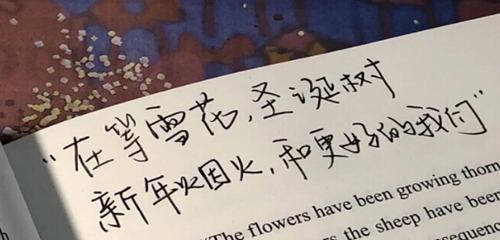 “在等雪花,圣诞树
新年烟火,和更好的我们”
“The flowers have been growing thorn
the sheep have been